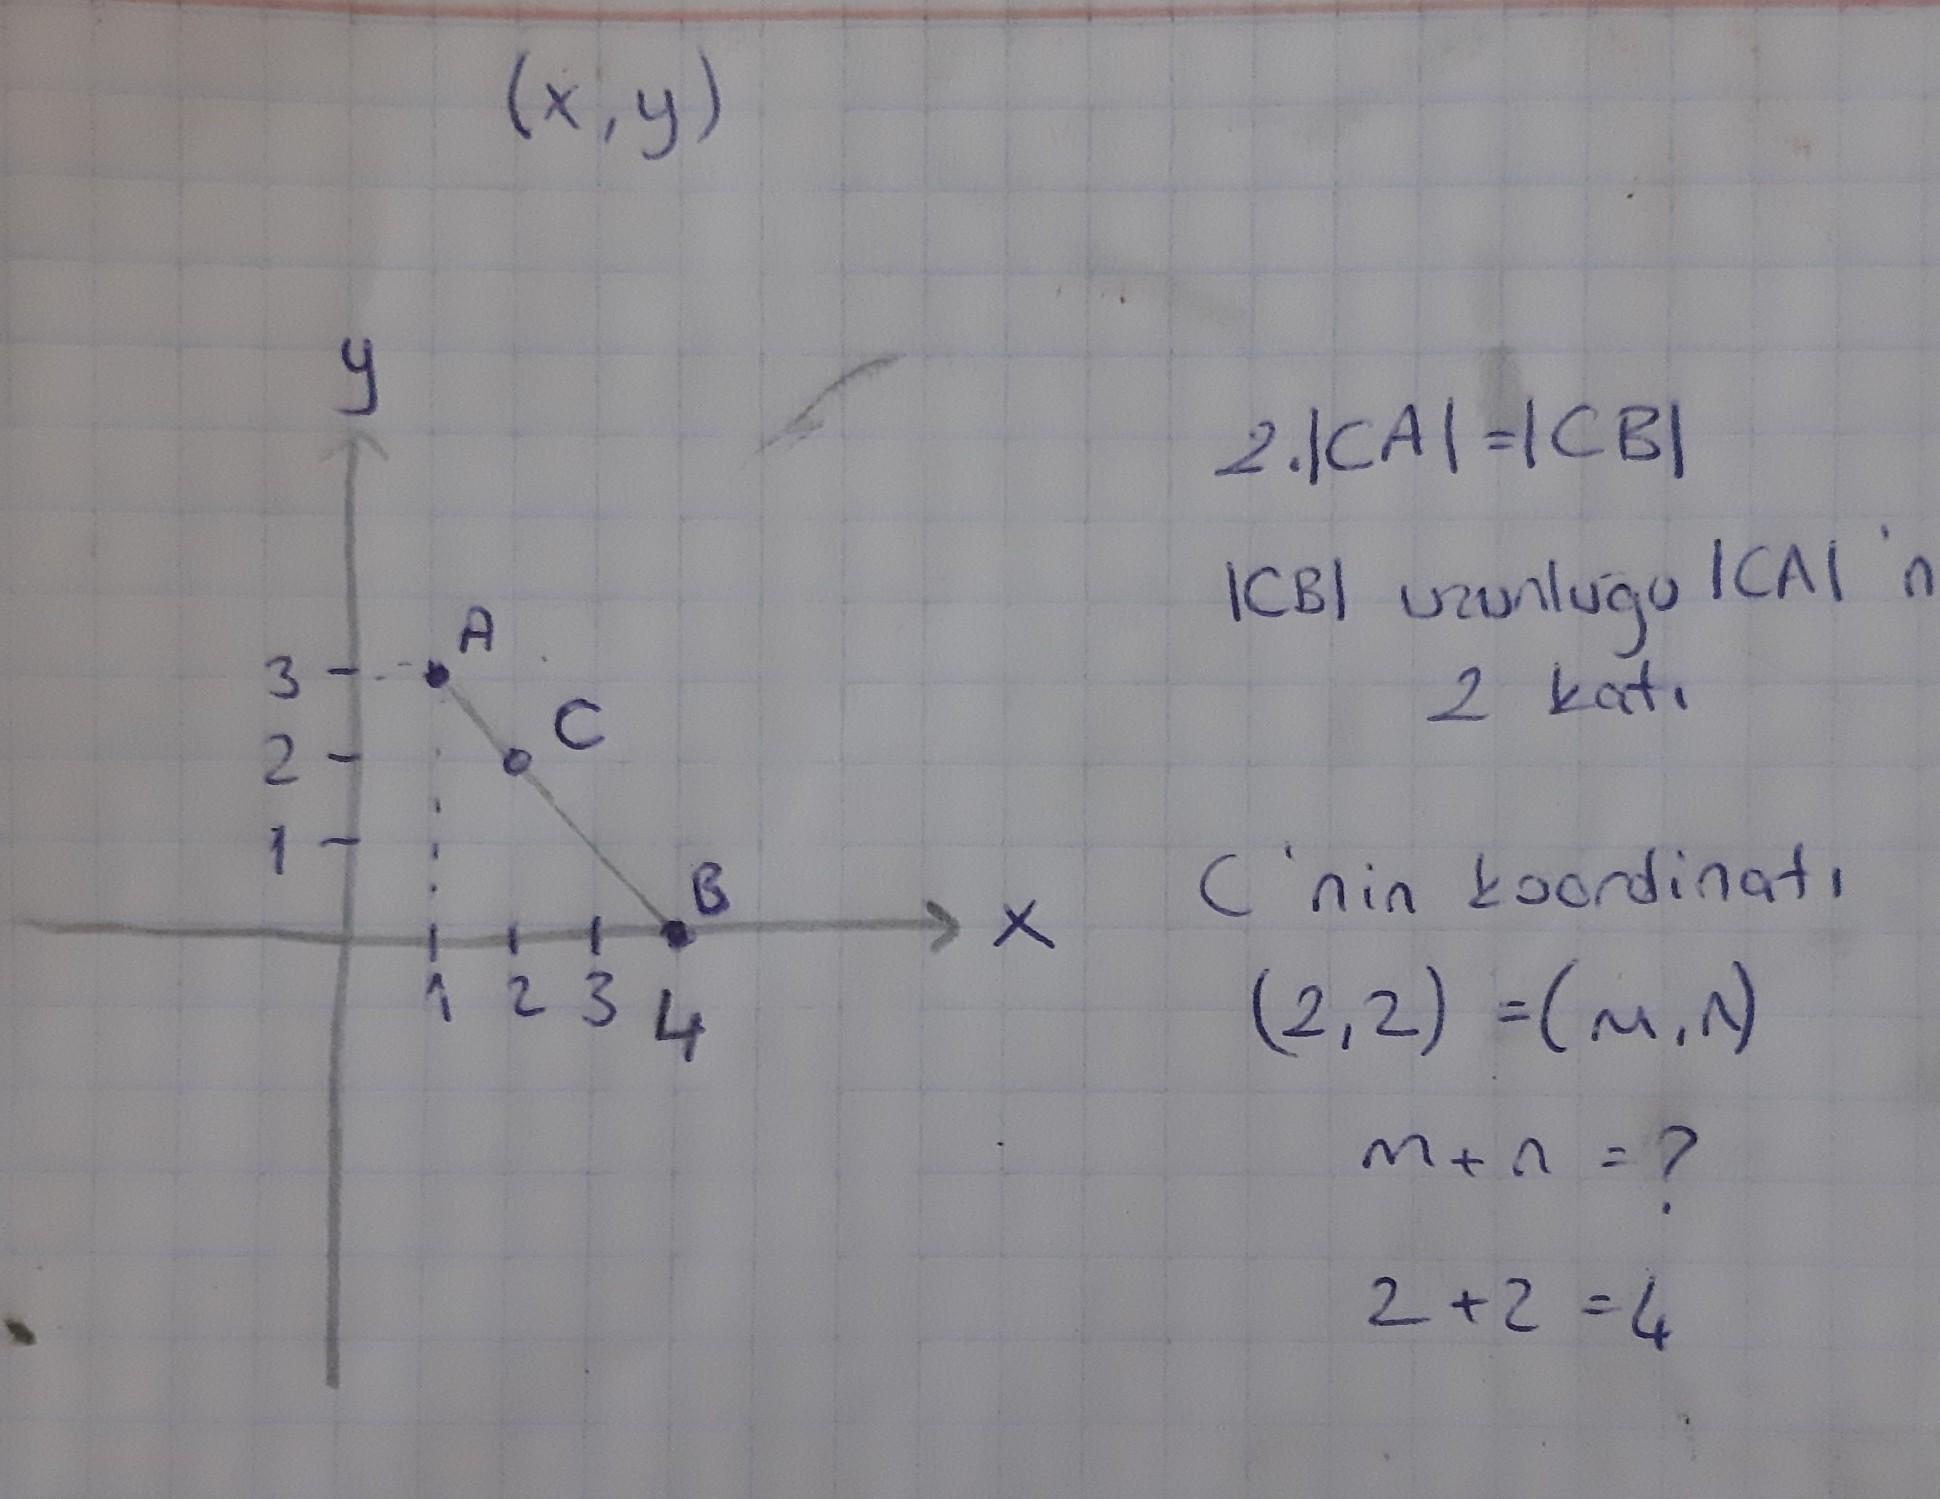 (x,y)
y
2.|CA|=|CB|
|CB| uzunluğu |CA|'n
2 katı
A
3
C
2
1
B
C'nin koordinatı
x
1 2 3 4
(2,2) =(m,n)
m+n =?
2+2=4